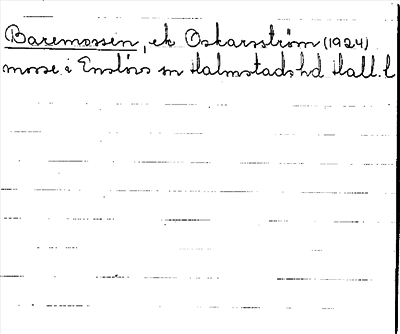 Baremossen, ek Oskarsström (1924)
mosse i Enslövs sn Halmstads hd Hall. l